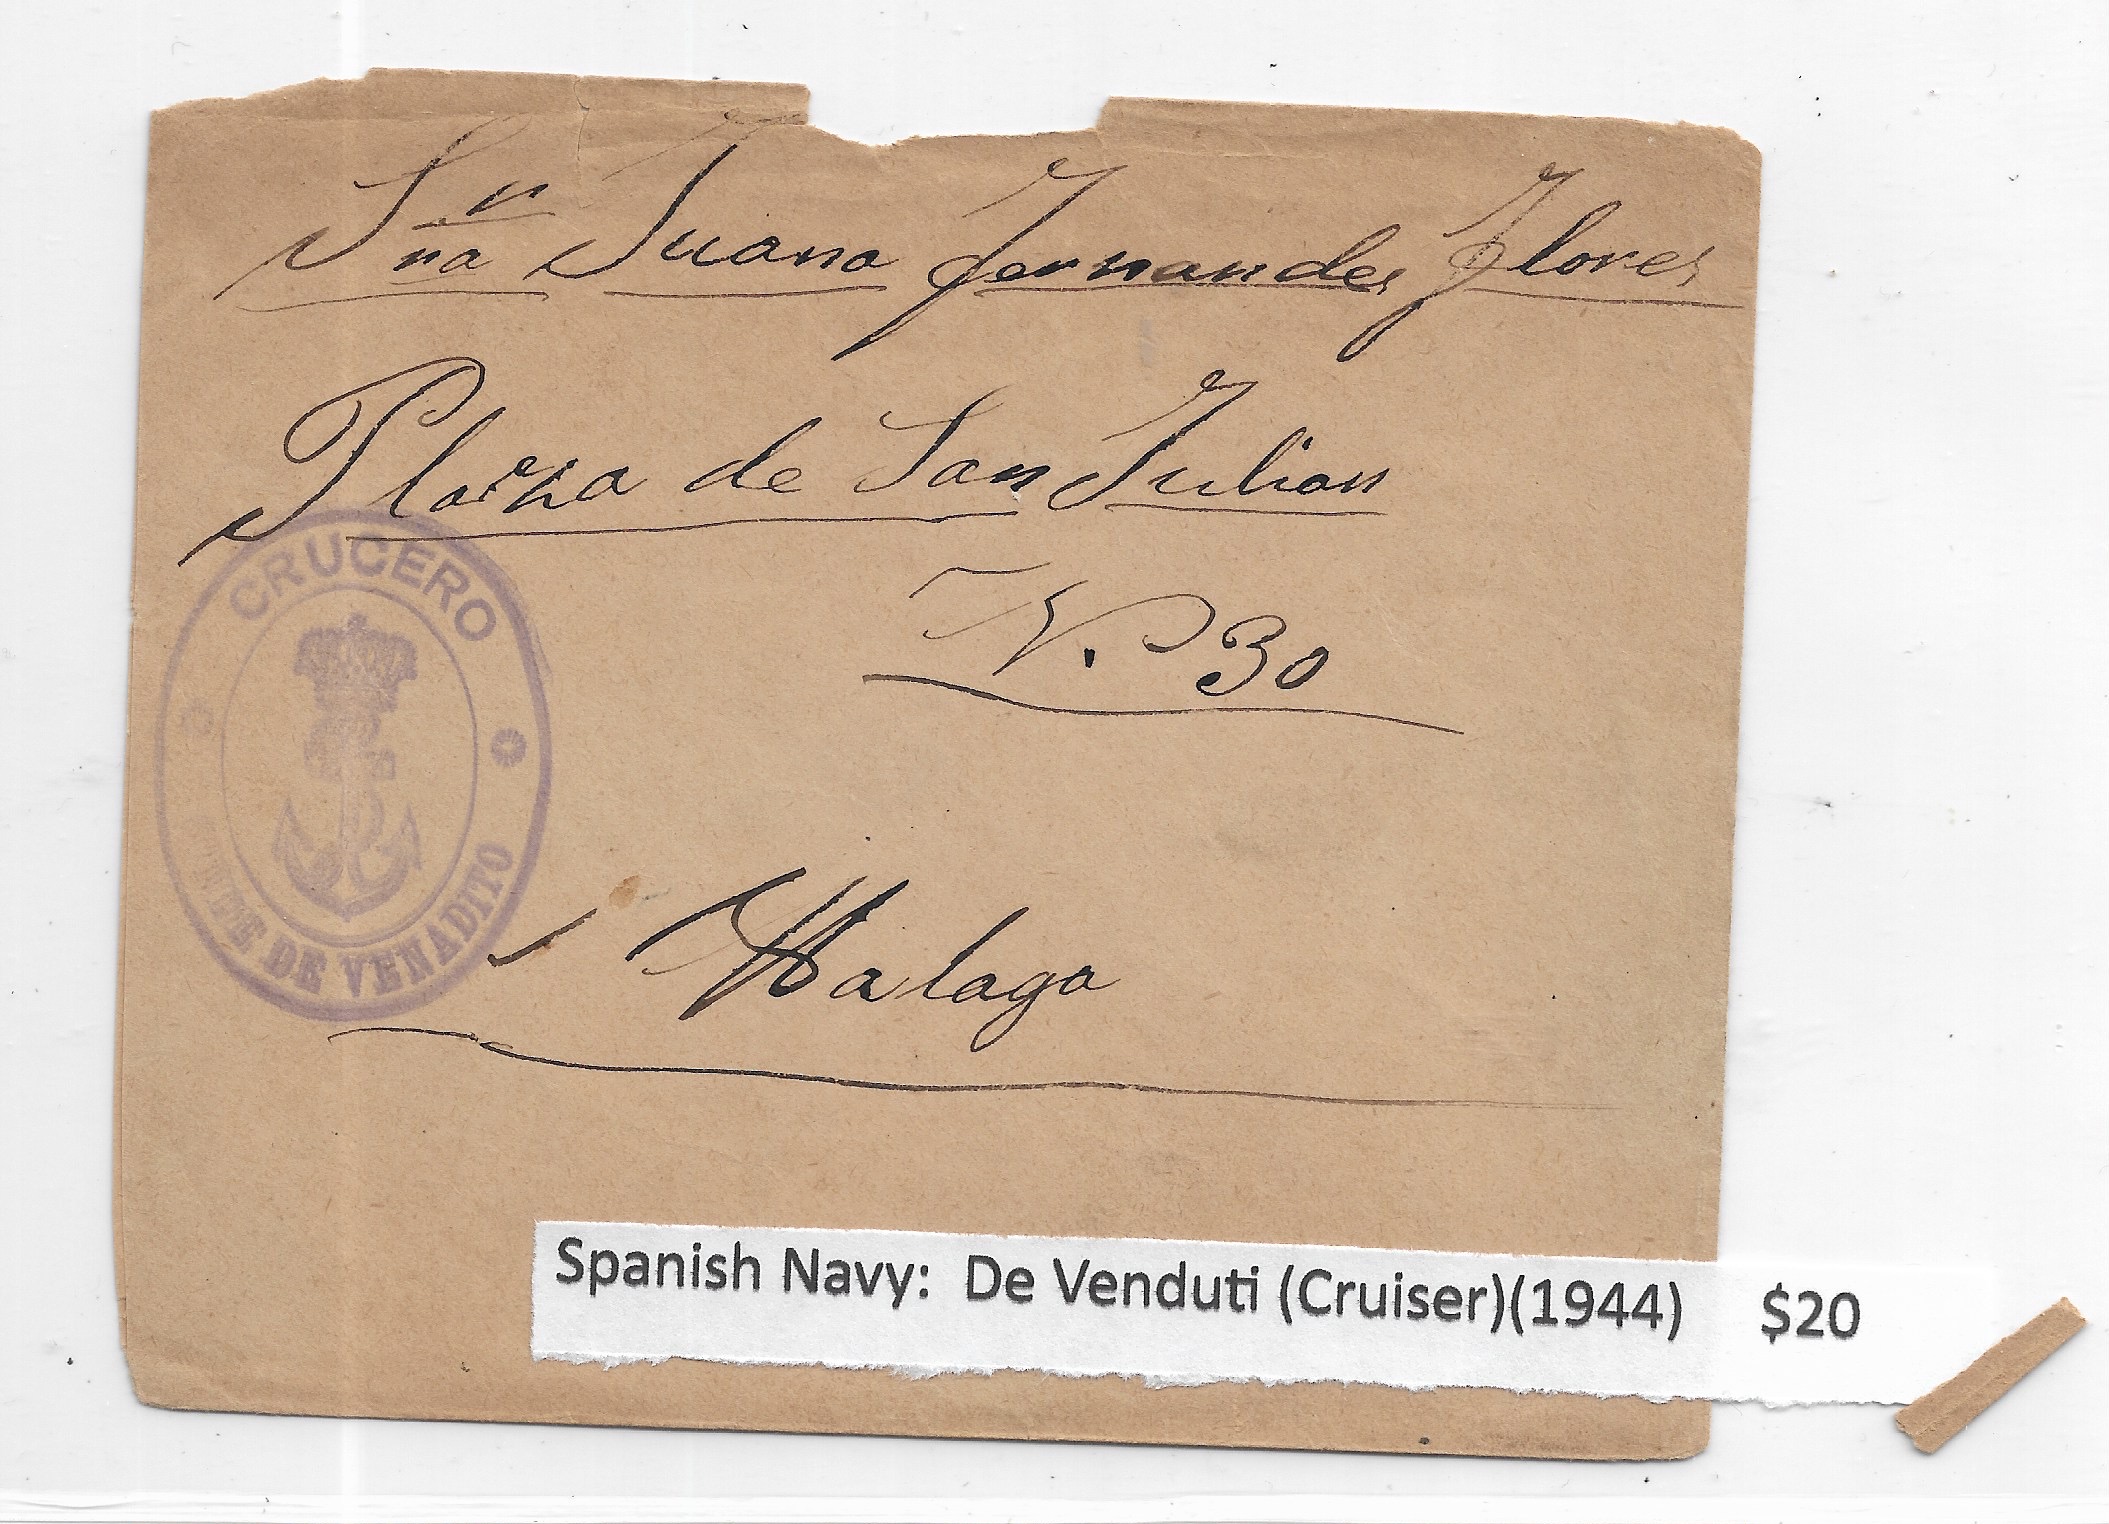 Sra Juana Fernandes Flores
Plaza de San Julian
N. 30
Malaga
CRUCERO
CONDE DE VENADITO
Spanish Navy: De Venduti (Cruiser)(1944) $20